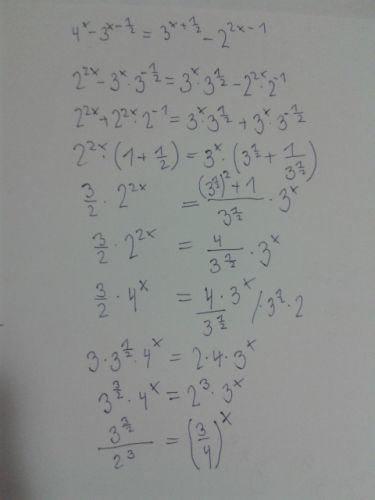 4^x - 3^{x-\frac{1}{2}} = 3^{x+\frac{1}{2}} - 2^{2x-1}
2^{2x} - 3^x \cdot 3^{-\frac{1}{2}} = 3^x \cdot 3^{\frac{1}{2}} - 2^{2x} \cdot 2^{-1}
2^{2x} + 2^{2x} \cdot 2^{-1} = 3^x \cdot 3^{\frac{1}{2}} + 3^x \cdot 3^{-\frac{1}{2}}
2^{2x} \cdot (1 + \frac{1}{2}) = 3^x \cdot (3^{\frac{1}{2}} + \frac{1}{3^{\frac{1}{2}}})
\frac{3}{2} \cdot 2^{2x} = \frac{(3^{\frac{1}{2}})^2 + 1}{3^{\frac{1}{2}}} \cdot 3^x
\frac{3}{2} \cdot 2^{2x} = \frac{4}{3^{\frac{1}{2}}} \cdot 3^x
\frac{3}{2} \cdot 4^x = \frac{4 \cdot 3^x}{3^{\frac{1}{2}}} / \cdot 3^{\frac{1}{2}} \cdot 2
3 \cdot 3^{\frac{1}{2}} \cdot 4^x = 2 \cdot 4 \cdot 3^x
3^{\frac{3}{2}} \cdot 4^x = 2^3 \cdot 3^x
\frac{3^{\frac{3}{2}}}{2^3} = (\frac{3}{4})^x